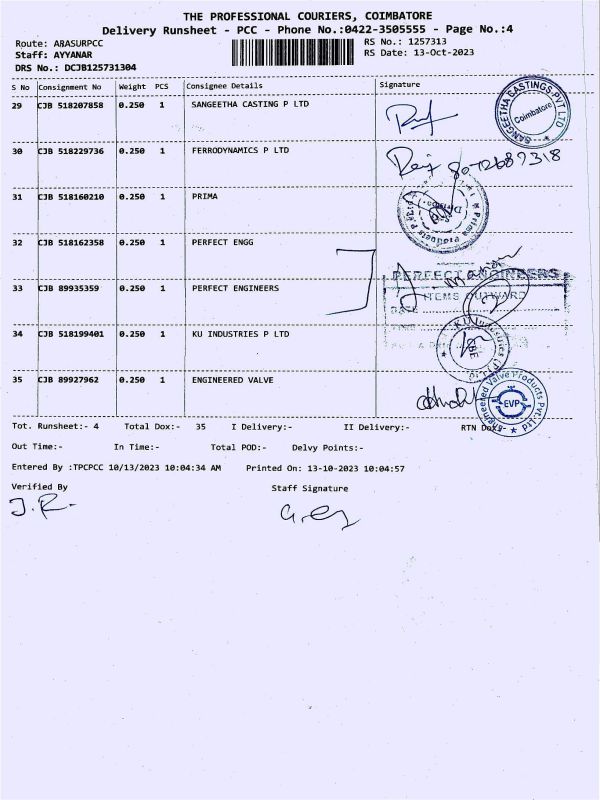 THE PROFESSIONAL COURIERS, COIMBATORE
Delivery Runsheet - PCC - Phone No.:0422-3505555 - Page No.:4
Route: ABASURPCC RS No.: 1257313
Staff: AYYANAR RS Date: 13-Oct-2023
DRS No.: DCJB125731304
S No Consignment No Weight PCS Consignee Details Signature
29 CJB 518207858 0.250 1 SANGEETHA CASTING P LTD
SANGEETHA CASTINGS PVT LTD
Coimbatore
30 CJB 518229736 0.250 1 FERRODYNAMICS P LTD
31 CJB 518160210 0.250 1 PRIMA
Prima Products P.
32 CJB 518162358 0.250 1 PERFECT ENGG
33 CJB 89935359 0.250 1 PERFECT ENGINEERS
PERFECT ENGINEERS
ITEMS OUTWARD
DATE
34 CJB 518199401 0.250 1 KU INDUSTRIES P LTD
35 CJB 89927962 0.250 1 ENGINEERED VALVE
Engineered Valve Products Pvt. Ltd
EVP
Tot. Runsheet:- 4 Total Dox:- 35 I Delivery:- II Delivery:- RTN Dox:-
Out Time:- In Time:- Total POD:- Delvy Points:-
Entered By :TPCPCC 10/13/2023 10:04:34 AM Printed On: 13-10-2023 10:04:57
Verified By Staff Signature
J.R.